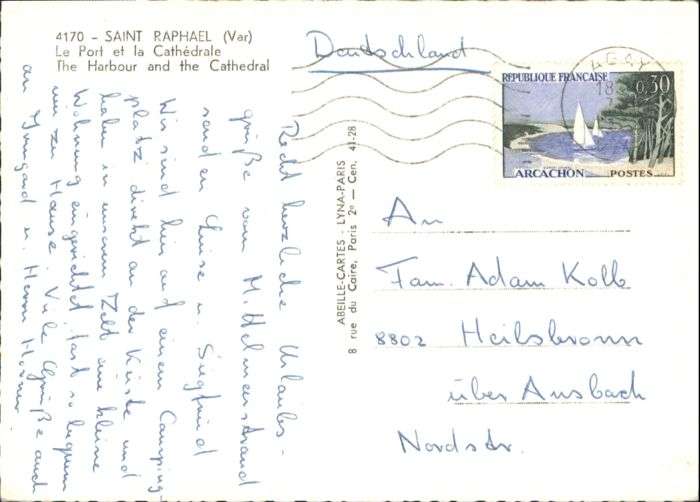 4170 - SAINT RAPHAEL (Var)
Le Port et la Cathédrale
The Harbour and the Cathedral
Deutschland
REPUBLIQUE FRANÇAISE
0,30
18
ARCACHON POSTES
ABEILLE-CARTES - LYNA-PARIS
8 rue du Caire, Paris 2e - Cen. 41-28
Recht herzliche Urlaubs-
grüße vom M. Helmeerstrand
senden Luise u. Siegfried
Wir sind hier auf einem Camping
platz direkt an der Küste und
haben in unserem Zelt eine kleine
Wohnung eingerichtet fast so bequem
wie zu Hause. Viele Grüße auch
an Irmgard u. Herrn
An
Fam. Adam Kolb
8802 Heilsbronn
über Ansbach
Nordstr.